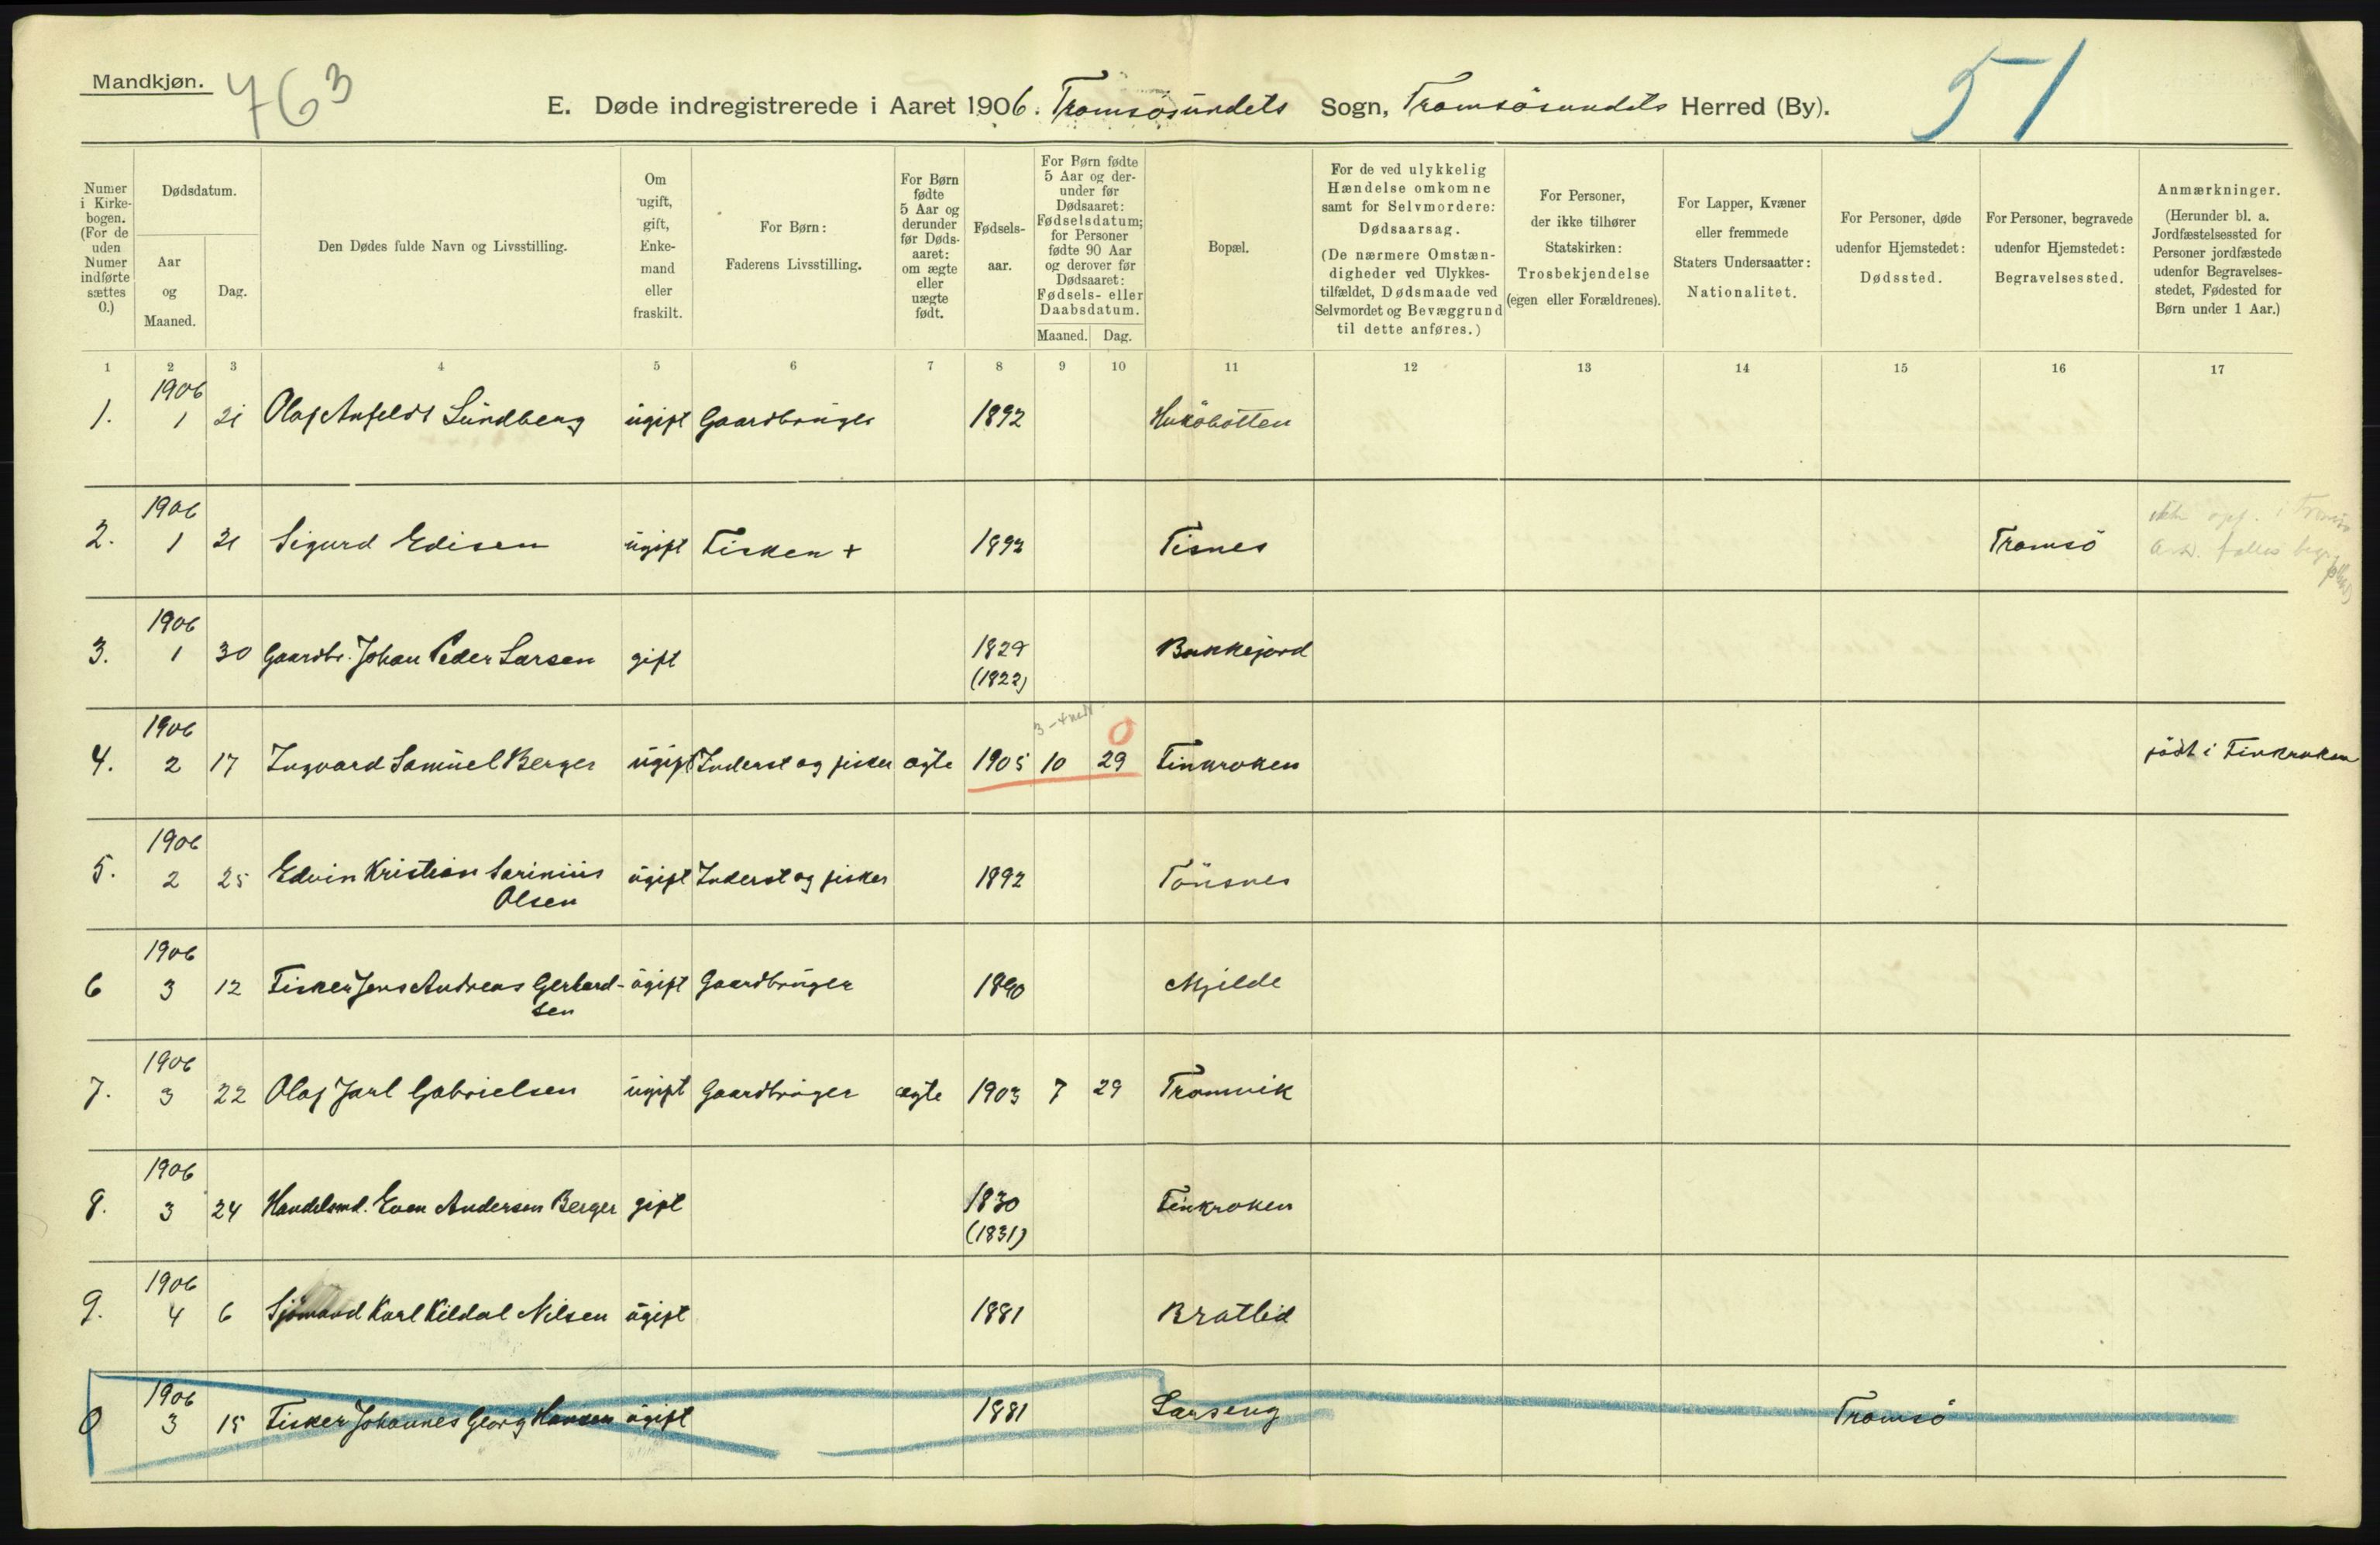 Mandkjøn.
763
51
E. Døde indregistrerede i Aaret 1906. Tromsøsundets Sogn, Tromsøsundets Herred (By).
Numer i Kirke-bogen. (For de uden Numer indførte sættes 0.)
Dødsdatum.
Aar og Maaned.
Dag.
Den Dødes fulde Navn og Livsstilling.
Om ugift, gift, Enke-mand eller fraskilt.
For Børn: Faderens Livsstilling.
For Børn fødte 5 Aar og derunder før Døds-aaret: om ægte eller uægte født.
Fødsels-aar.
For Børn fødte 5 Aar og der-under før Dødsaaret: Fødselsdatum; for Personer fødte 90 Aar og derover før Dødsaaret: Fødsels- eller Daabsdatum.
Maaned. Dag.
Bopæl.
For de ved ulykkelig Hændelse omkomne samt for Selvmordere: Dødsaarsag. (De nærmere Omstæn-digheder ved Ulykkes-tilfældet, Dødsmaade ved Selvmordet og Bevæggrund til dette anføres.)
For Personer, der ikke tilhører Statskirken: Trosbekjendelse (egen eller Forældrenes).
For Lapper, Kvæner eller fremmede Staters Undersaatter: Nationalitet.
For Personer, døde udenfor Hjemstedet: Dødssted.
For Personer, begravede udenfor Hjemstedet: Begravelsessted.
Anmærkninger. (Herunder bl. a. Jordfæstelsessted for Personer jordfæstede udenfor Begravelses-stedet, Fødested for Børn under 1 Aar.)
1 2 3 4 5 6 7 8 9 10 11 12 13 14 15 16 17
1906
1. 1 21 Olaf Anfeldt Lundberg ugift Gaardbruger 1892
1906
2. 1 21 Sigurd Edisen ugift Fisker + 1892 Tisnes Tromsö
1906
3. 1 30 Gaardbr. Johan Peder Larsen gift 1829 Bakkejord
(1822)
1906
4. 2 17 Ingvard Samuel Berger ugift Inderst og fisker ægte 1905 10 29 Finkroken født i Finkroken
0
1906
5. 2 25 Edvin Kristian Sarinius ugift Inderst og fisker 1892 Tönsnes
Olsen
1906
6 3 12 Fisker Jens Andreas Gerhard- ugift Gaardbruger 1890 Mjelde
sen
1906
7. 3 22 Olaf Jarl Gabrielsen ugift Gaardbruger ægte 1903 7 29 Tromvik
1906
8. 3 24 Handelsmd. Even Andersen Berger gift 1830 Finkroken
(1831)
1906
9. 4 6 Sjømand Karl Kildal Nilsen ugift 1881 Bratlid
1906
0 3 15 Fisker Johannes Georg Hansen ugift 1881 Larseng Tromsö